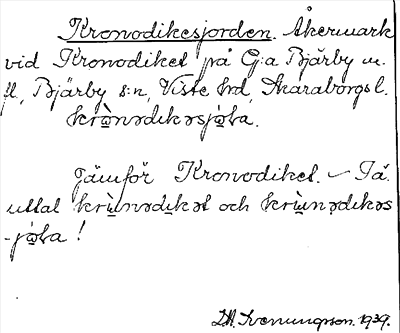 Kronodikesjorden. Åkermark
vid Kronodiket på G:a Bjärby m.
fl., Bjärby s:n, Viste hrd, Skaraborgs l.
krùnədikəsjo̱ɾa.
Jämför Kronodiket. – Få.
uttal krùnədikət och krùnədikəs
-jo̱ɾa!
D.A. Svenungsson. 1939.